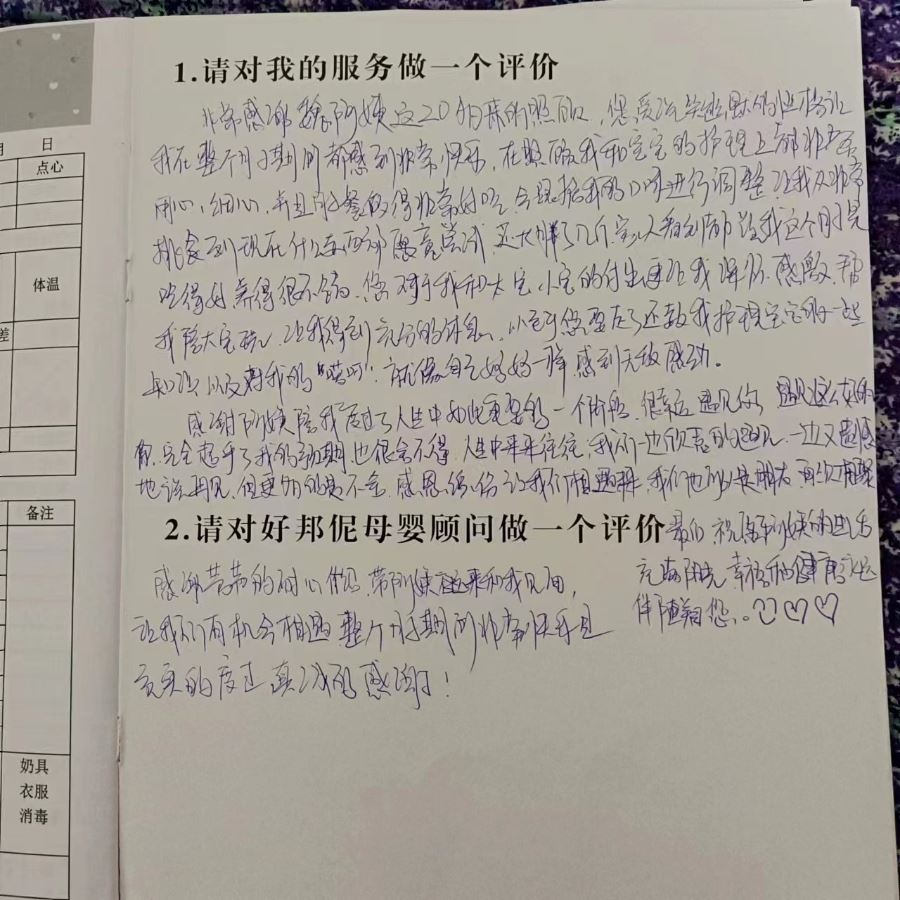 月 日
点心
体温
差
备注
奶具
衣服
消毒
1.请对我的服务做一个评价
非常感谢魏阿姨这20多天的照顾，您爱说笑幽默的性格让
我在整个月子期间都感到非常快乐，在照顾我和宝宝的护理上都非常
用心、细心，并且月子餐做得非常好吃，会跟据我的口味进行调整，让我从非常
挑食到现在什么东西都愿意尝试，还大胖了几斤，家人看到都说我这个月子是
吃得好养得很不错，您对于我和大宝小宝的付出更让我详尽感激，帮
我陪大宝玩，让我得到充分的休息，以至于您要走了还教我护理宝宝的一些
知识，以及对我的“唠叨”，就像自己妈妈一样感到无敌感动。
感谢阿姨陪我度过了人生中如此重要的一个阶段，很幸运遇见你，遇见这么好的
您，完全超乎了我的预期，也很舍不得，人生中来来往往，我们一边欣喜的遇见，一边又遗憾
地说再见，但更多的是不舍，感恩缘份让我们相遇，我们也可以是朋友，再次相聚
2.请对好邦伲母婴顾问做一个评价
最后祝愿阿姨的生活
充满阳光，幸福和健康永远
伴随着您。♡♡♡
感谢芸芸的耐心解答，带阿姨过来和我见面，
让我们有机会相遇，整个月子期间非常快乐且
充实的度过，真诚的感谢！